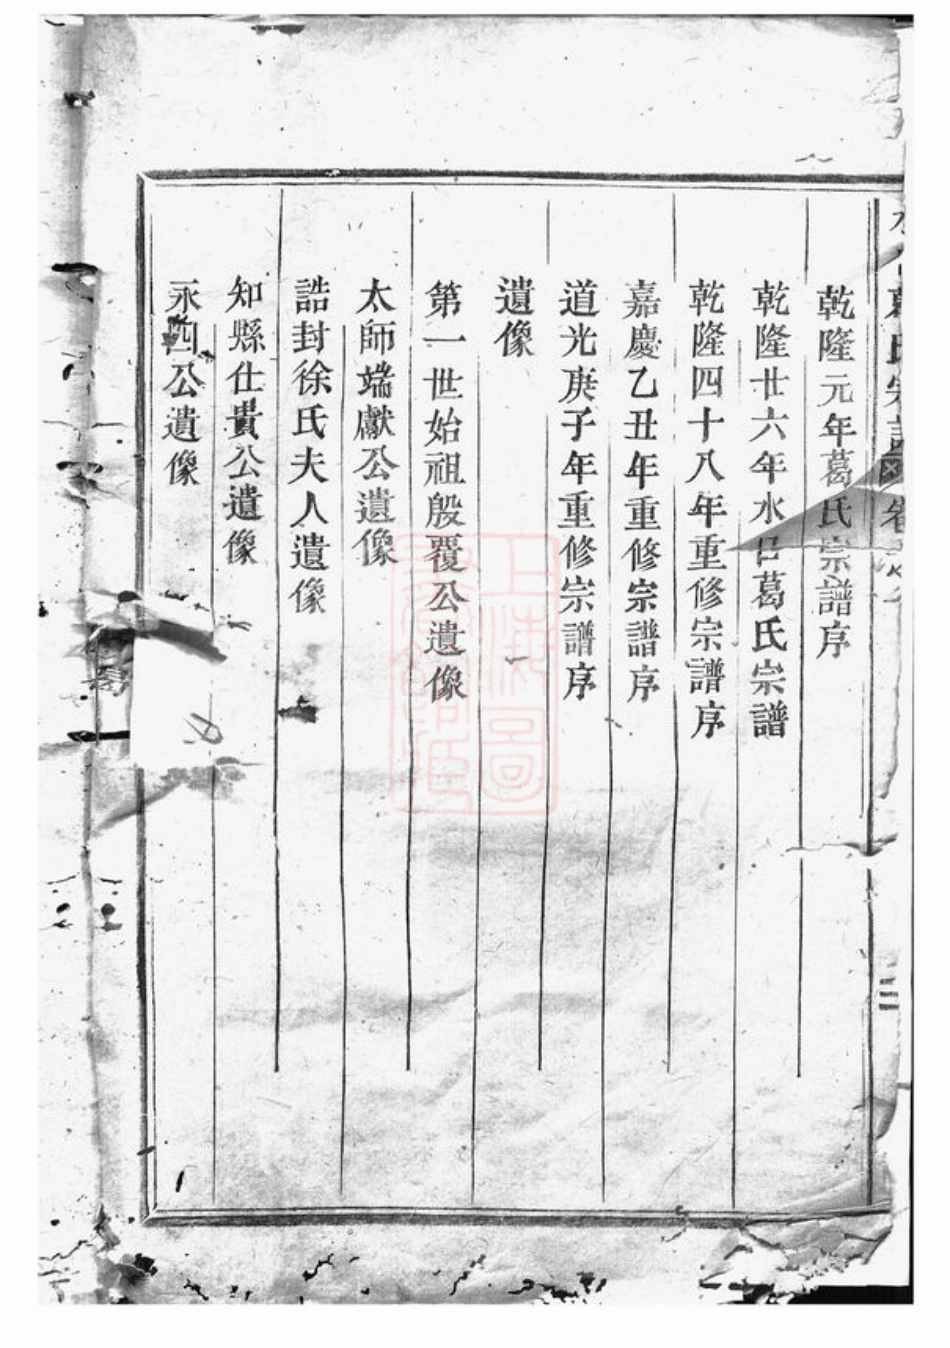 葛氏宗譜 卷
三
乾隆元年葛氏宗譜序
乾隆廿六年水口葛氏宗譜
乾隆四十八年重修宗譜序
嘉慶乙丑年重修宗譜序
道光庚子年重修宗譜序
遺像
第一世始祖殷覆公遺像
太師端獻公遺像
誥封徐氏夫人遺像
知縣仕貴公遺像
永四公遺像
上海圖